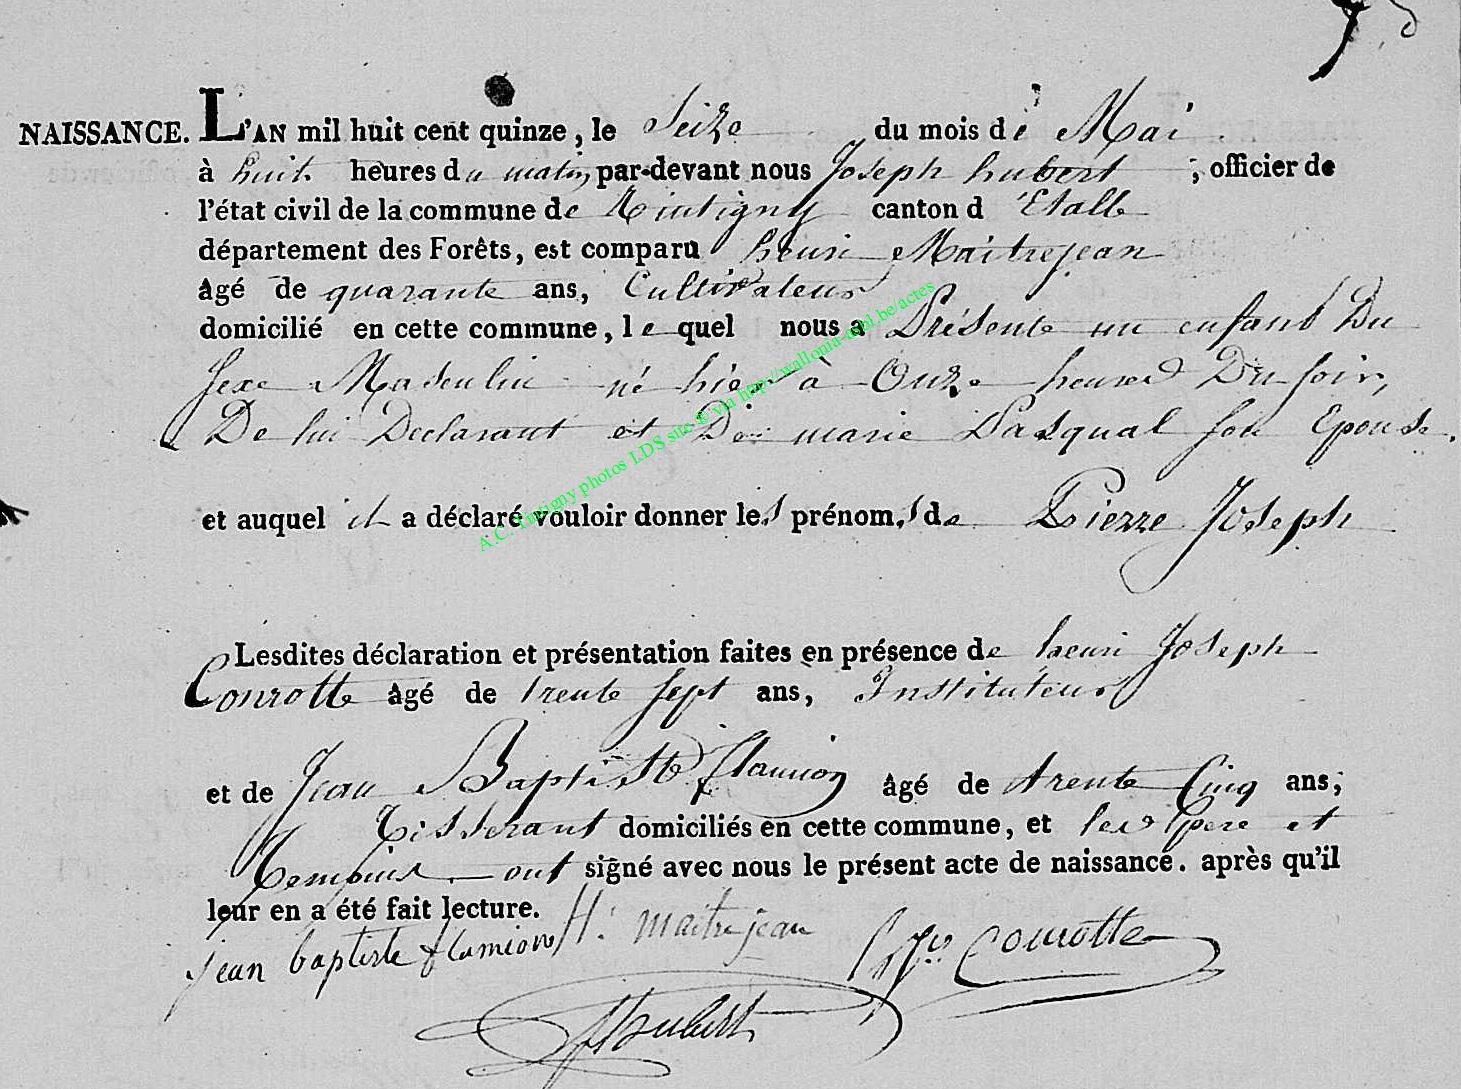 NAISSANCE. L'AN mil huit cent quinze, le Seize du mois de Mai
à huit heures du matin par-devant nous Joseph hubert, officier de
l'état civil de la commune de Tintigny canton d'Etalle
département des Forêts, est comparu henri Maitrejean
âgé de quarante ans, Cultivateur
domicilié en cette commune, le quel nous a Présenté un enfant Du
Sexe Masculin né hier à Onze heures Du soir,
De lui Declarant et De marie Pasqual son Epouse.
et auquel il a déclaré vouloir donner les prénoms de Pierre Joseph
Lesdites déclaration et présentation faites en présence de henri Joseph
Conrotte âgé de trente sept ans, Instituteur
et de Jean Baptiste flamion âgé de trente Cinq ans,
Tisserant domiciliés en cette commune, et les pere et
temoins ont signé avec nous le présent acte de naissance. après qu'il
leur en a été fait lecture.
jean baptiste flamion H. maitrejean Conrotte
Hubert
A.C. Tintigny photos LDS site & via http://wallonia-asbl.be/actes